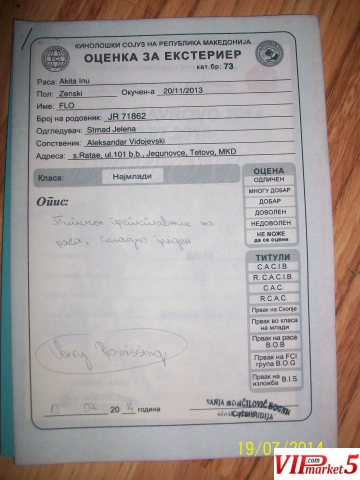 КИНОЛОШКИ СОЈУЗ НА РЕПУБЛИКА МАКЕДОНИЈА
ОЦЕНКА ЗА ЕКСТЕРИЕР
кат.бр: 73
Раса: Akita Inu
Пол: Zenski Окучен-а 20/11/2013
Име: FLO
Број на родовник: JR 71862
Одгледувач: Strnad Jelena
Сопственик: Aleksandar Vidojevski
Адреса: s.Ratae, ul.101 b.b., Jegunovce, Tetovo, MKD
Класа: Најмлади
Опис:
Типичен претставник на
раса, складно граден
ОЦЕНА
ОДЛИЧЕН
МНОГУ ДОБАР
ДОБАР
ДОВОЛЕН
НЕДОВОЛЕН
НЕ МОЖЕ
да се оцени
ТИТУЛИ
C.A.C.I.B.
R. C.A.C.I.B.
C.A.C.
R.C.A.C.
Првак на Скопје
Првак во класа
на млади
Првак на раса
B.O.B
Првак на FCI
група B.O.G
Првак на
изложба B.I.S.
Very Promissing
20 година
19/07/2014
VIP.com
market5